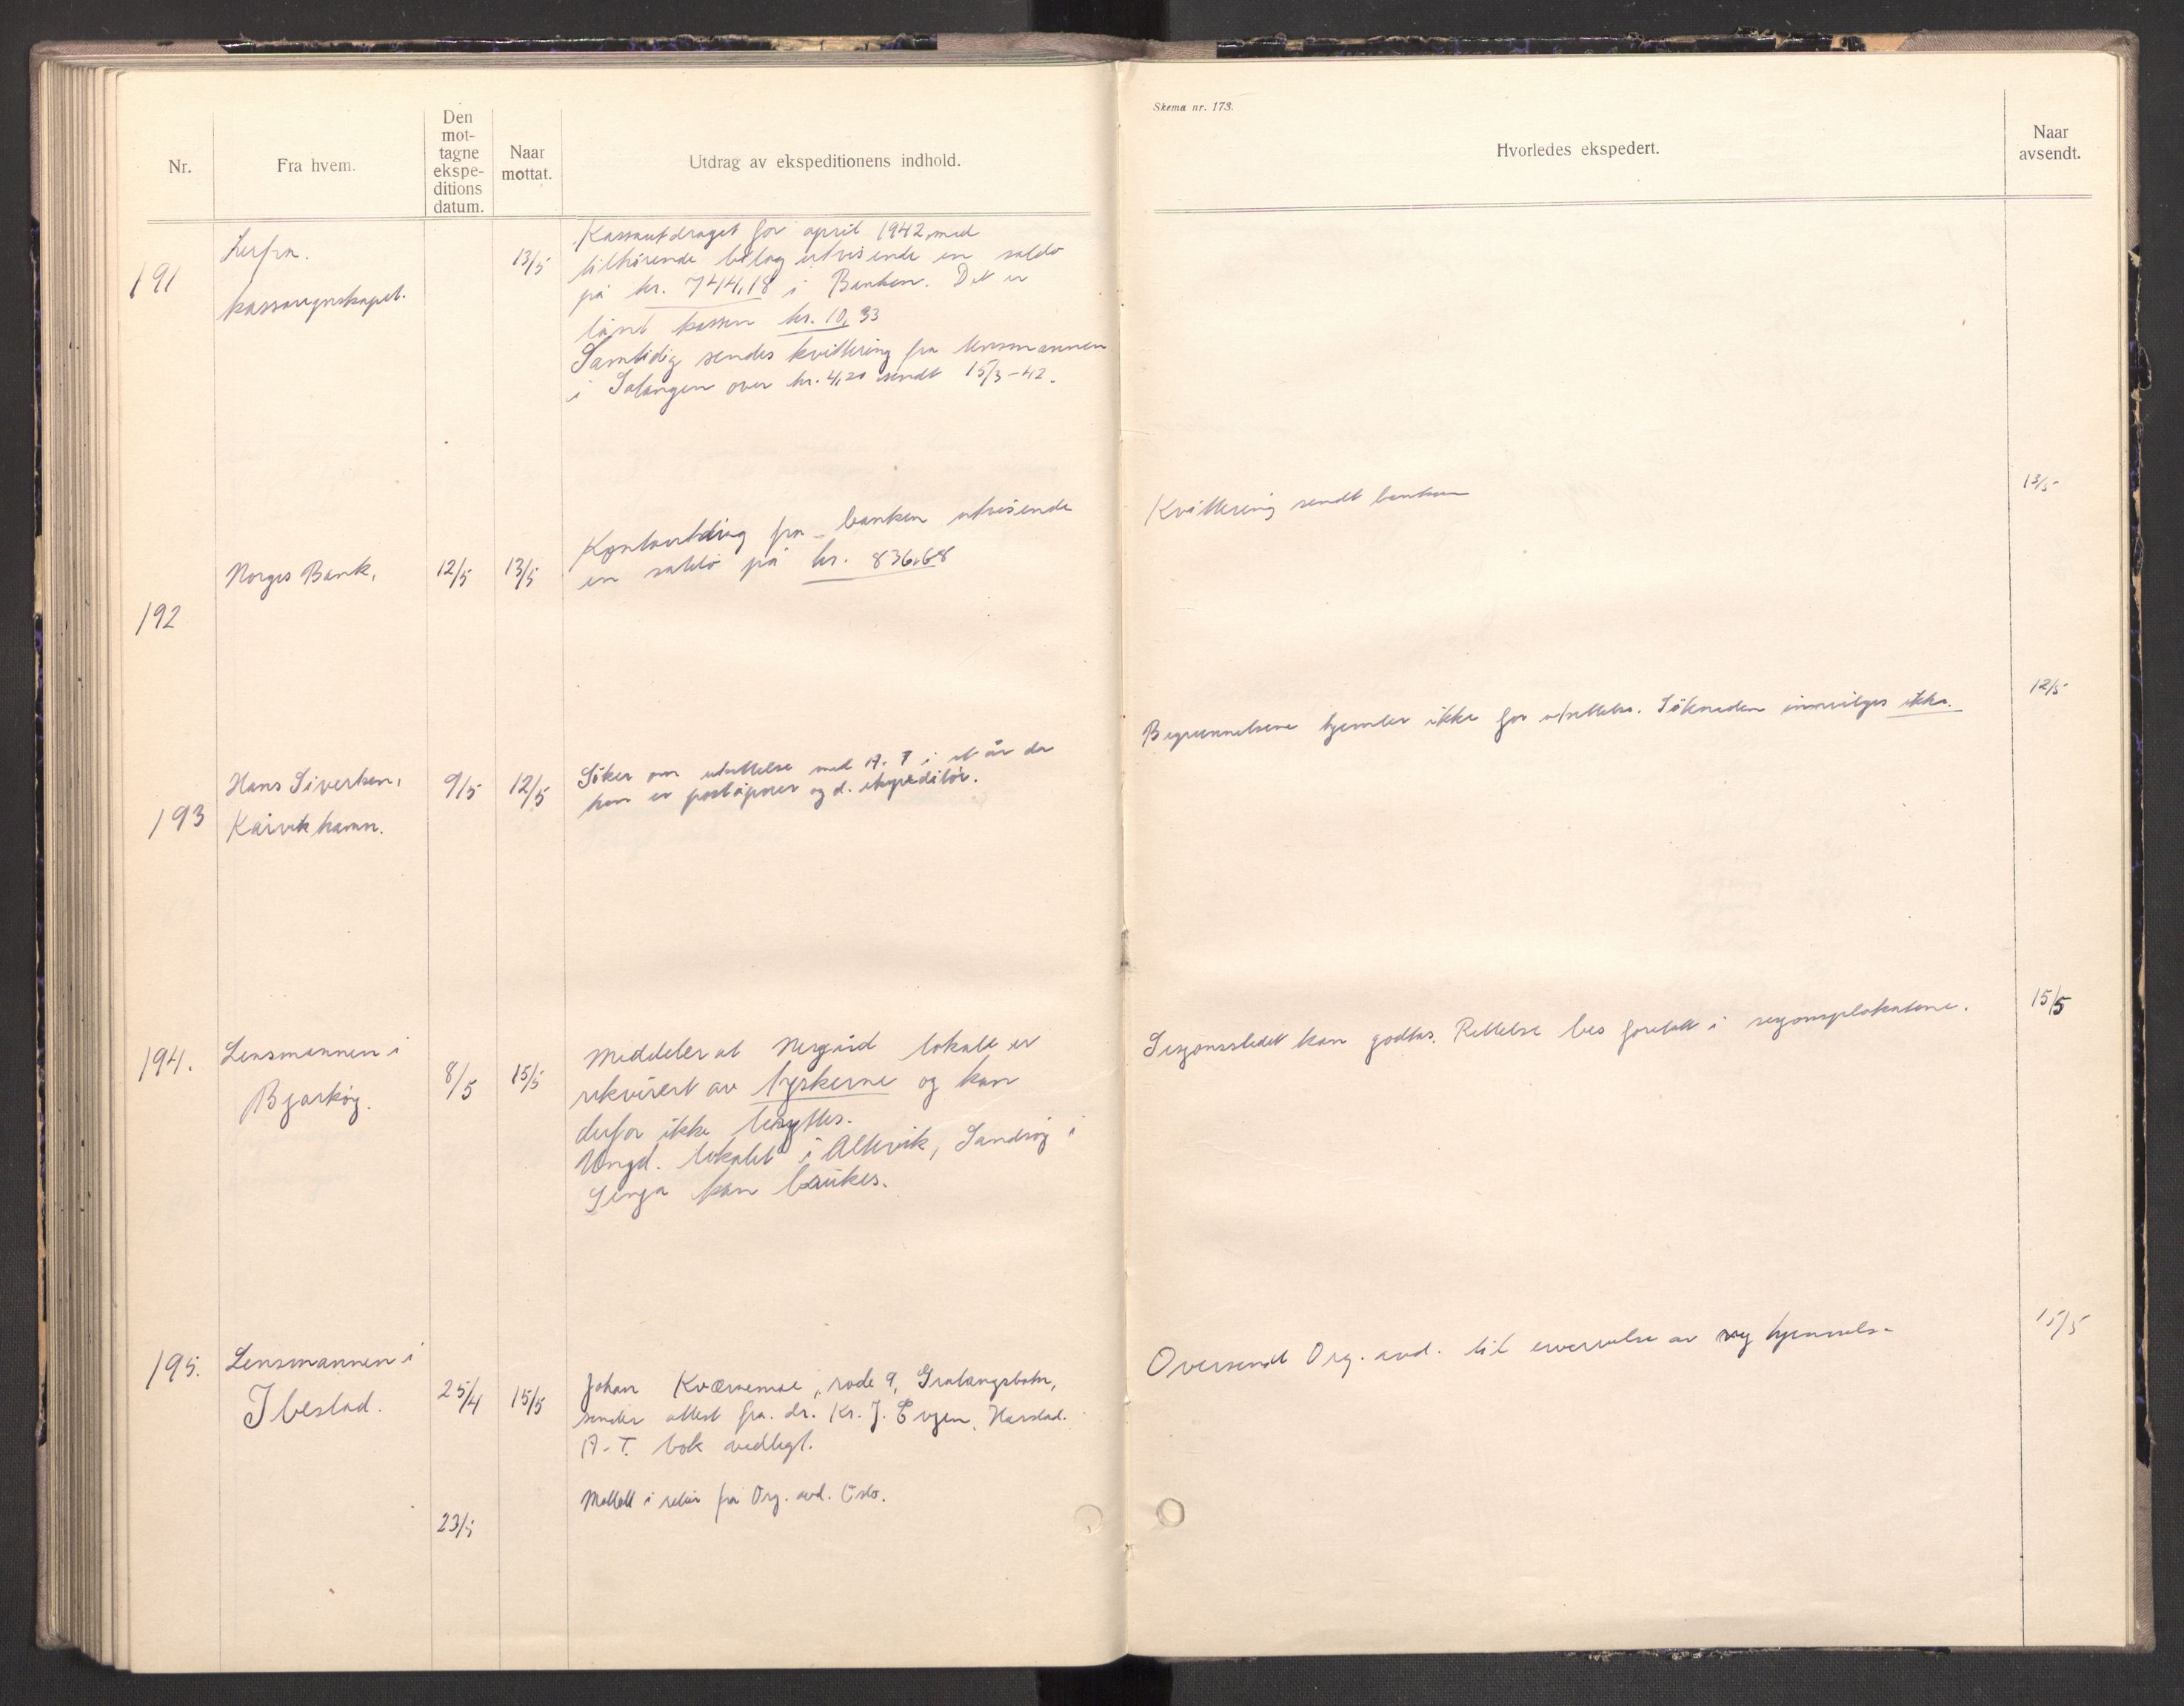 Skema nr. 173.
Nr.
Fra hvem.
Den
mot-
tagne
ekspe-
ditions
datum.
Naar
mottat.
Utdrag av ekspeditionens indhold.
Hvorledes ekspedert.
Naar
avsendt.
191
Herfra.
kassaregnskapet.
13/5
Kassautdraget for april 1942 med
tilhørende bilag utvisende en saldo
på kr. 744,18 i Banken. Det er
lånt kassen kr. 10,33
Samtidig sendes kvittering fra lensmannen
i Salangen over kr. 4,20 sendt 15/3-42.
192
Norges Bank.
12/5
13/5
Kontoutdrag fra banken utvisende
en saldo på kr. 836.68
Kvittering sendt banken
13/5
193
Hans Sivertsen,
Kårvikhamn.
9/5
12/5
Söker om utsettelse med A.T i et år da
han er poståpner og d. ekspeditör.
Begrunnelsene hjemler ikke for utsettelse. Söknaden innvilges ikke.
12/5
194.
Lensmannen i
Bjarköy.
8/5
15/5
Meddeler at Nergård lokale er
rekvirert av tyskerne og kan
derfor ikke benyttes.
Ungd. lokalet i Altevik, Sandsöy i
Senja kan brukes.
Sesjonsstedet kan godtas. Rettelse bes foretatt i sesjonsplakatene.
15/5
195.
Lensmannen i
Ibestad.
25/4
15/5
Johan Kværnemoe, rode 9, Gratangsbotn,
sender attest fra dr. Kr. J. Evjen, Harstad.
A-T. bok vedlagt.
Oversendt Org. avd. til ervervelse av ny hjemmels-
15/5
23/5
Mottatt i retur fra Org. avd. Oslo.